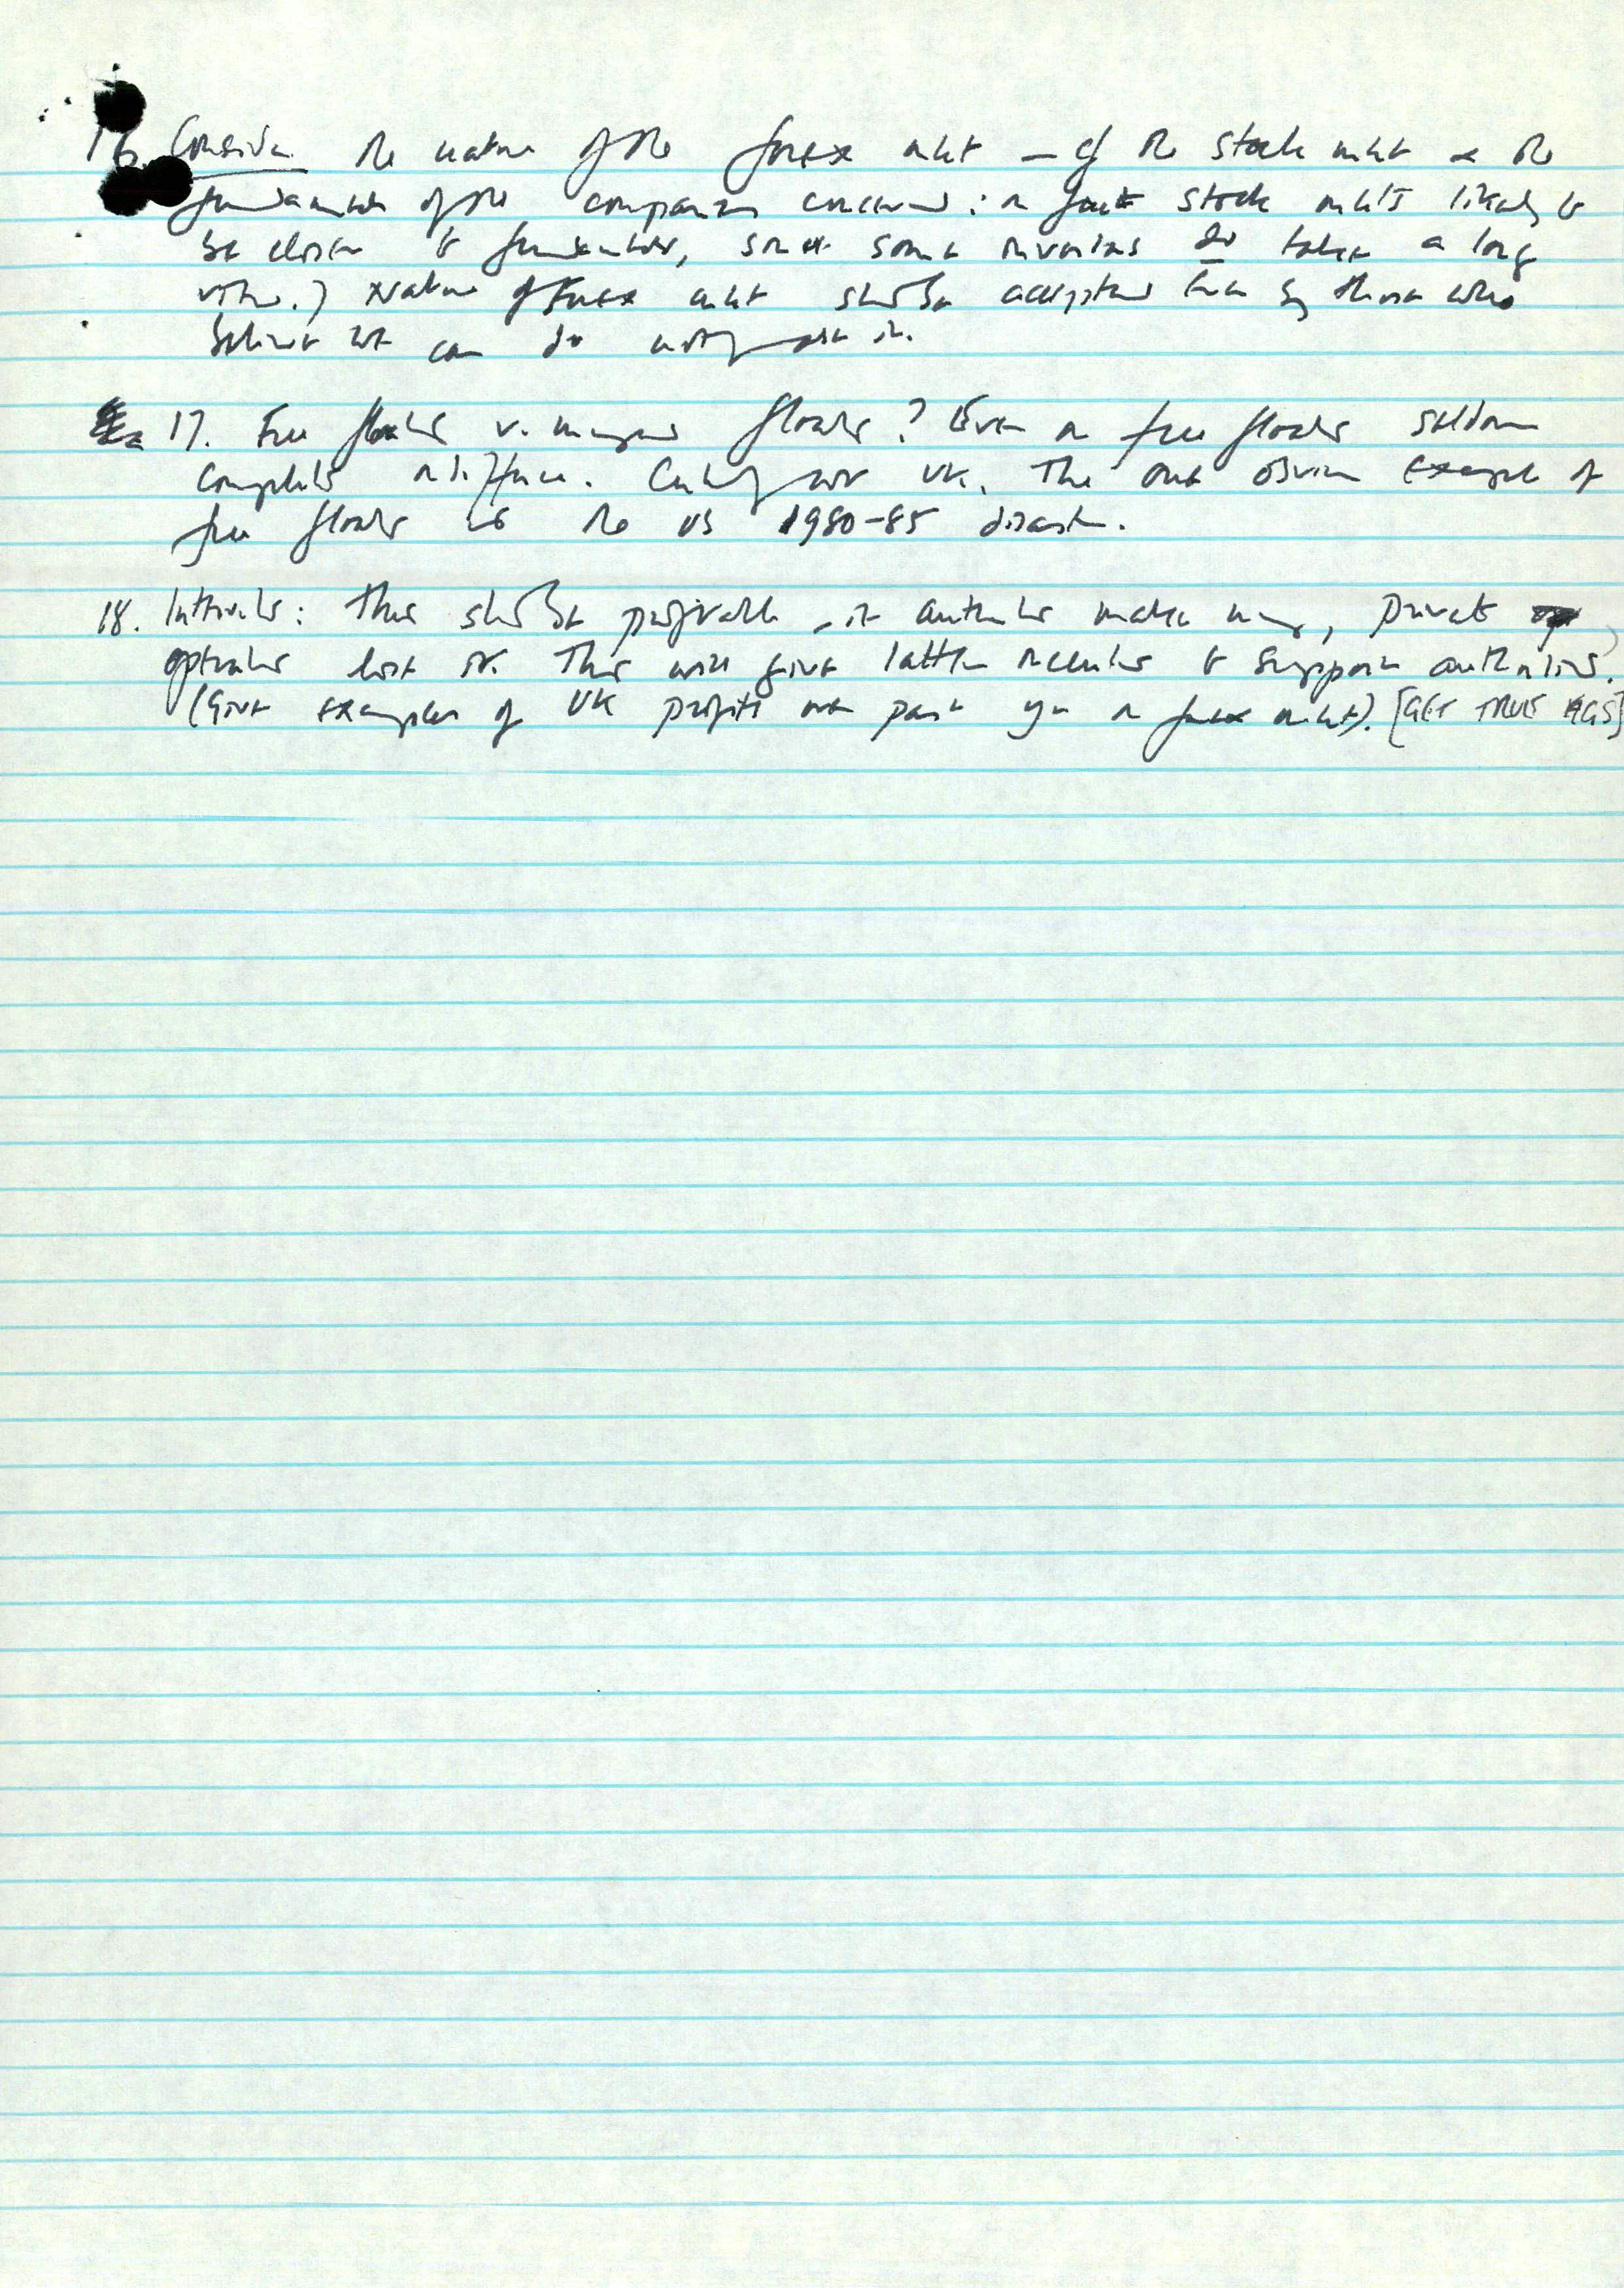 16. Consider the nature of the forex mkt – cf the stock mkt & the
fundamentals of the companies concerned: in fact stock mkts likely to
be closer to fundamentals, since some investors do take a long
view.) Nature of forex mkt shd be accepted even by those who
believe we can do nothing abt it.
17. Free floats v. managed floats? Even in free floats seldom
complete indifference. Certainly not UK. The one obvious example of
free floats is the US 1980-85 disaster.
18. Intervention: This shd be profitable – ie authorities make money, private
operators lose it. This will give latter incentive to support authorities.
(Give examples of UK profits over past yr in forex mkt). [GET TRUE FIGS]